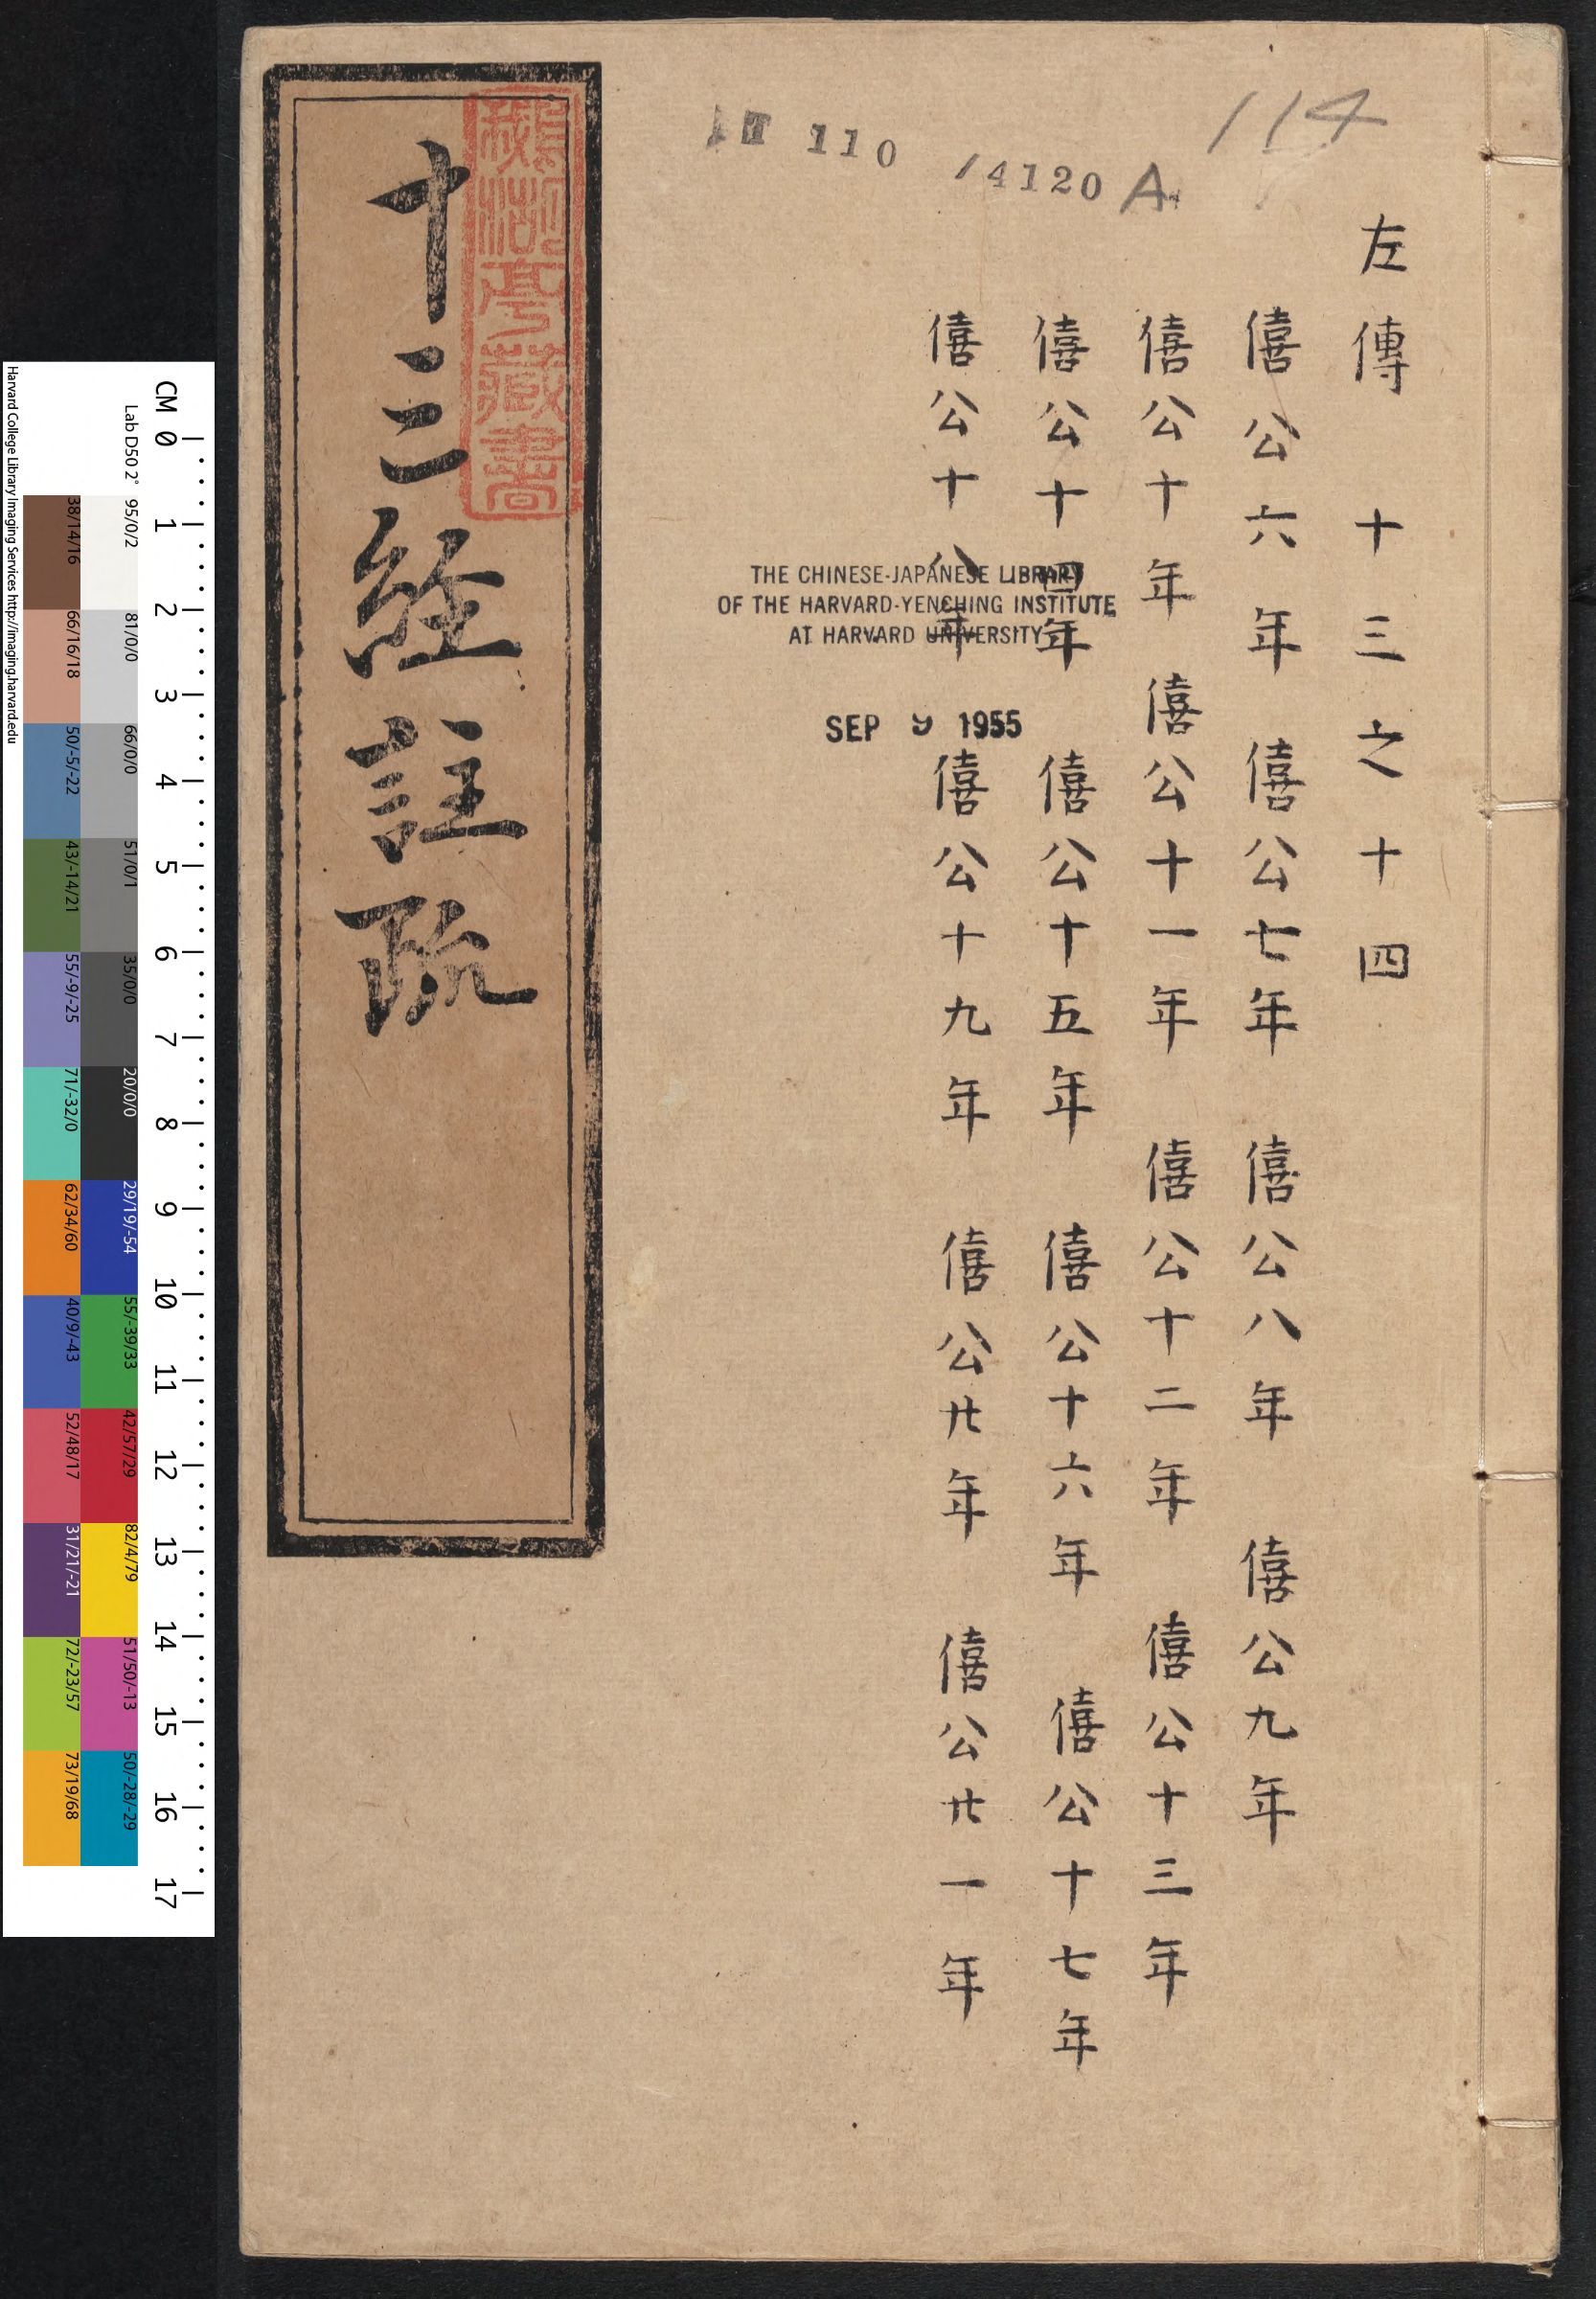 114
110
/4120 A
左傳 十三之十四
僖公六年 僖公七年 僖公八年 僖公九年
僖公十年 僖公十一年 僖公十二年 僖公十三年
僖公十四年 僖公十五年 僖公十六年 僖公十七年
僖公十八年 僖公十九年 僖公廿年 僖公廿一年
THE CHINESE-JAPANESE LIBRARY
OF THE HARVARD-YENCHING INSTITUTE
AT HARVARD UNIVERSITY
SEP 9 1955
十三経註疏
藏書
CM 0 1 2 3 4 5 6 7 8 9 10 11 12 13 14 15 16 17
Lab D50 2° 95/0/2 81/0/0 66/0/0 51/0/1 35/0/0 20/0/0 29/19/-54 55/-39/33 42/57/29 82/4/79 51/50/-13 50/-28/-29
38/14/16 66/16/18 50/-5/-22 43/-14/21 55/-9/-25 71/-32/0 62/34/60 40/9/-43 52/48/17 31/21/-21 72/-23/57 73/19/68
Harvard College Library Imaging Services http://imaging.harvard.edu